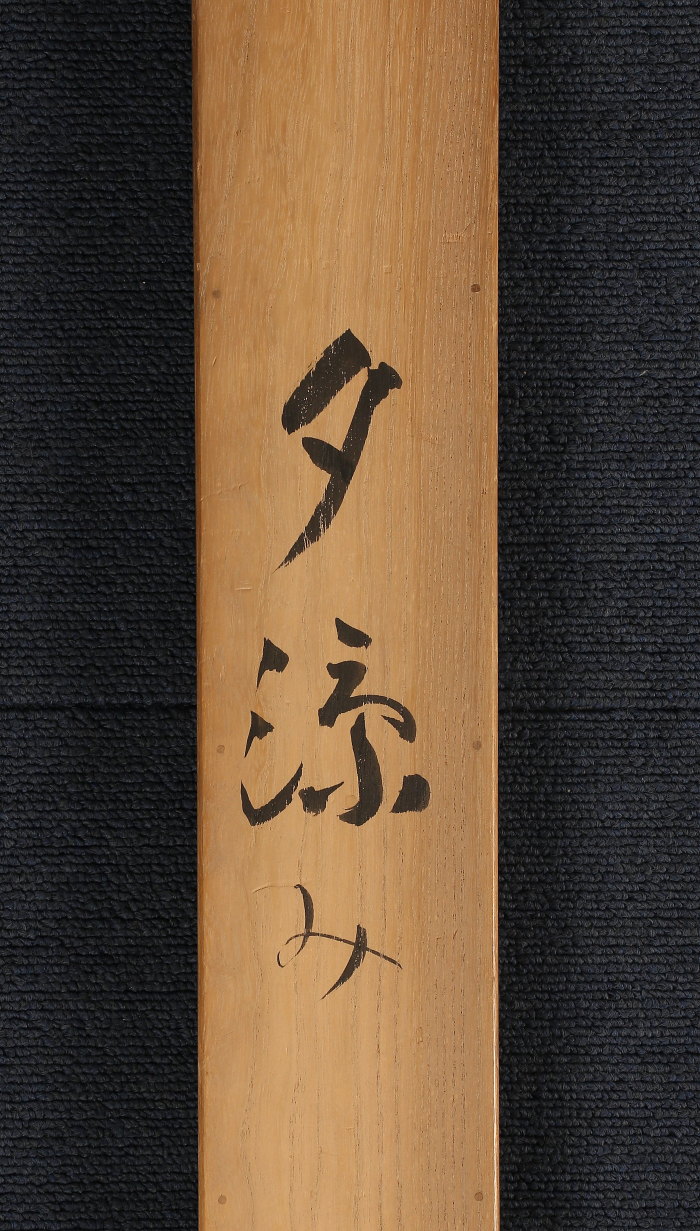 夕涼み